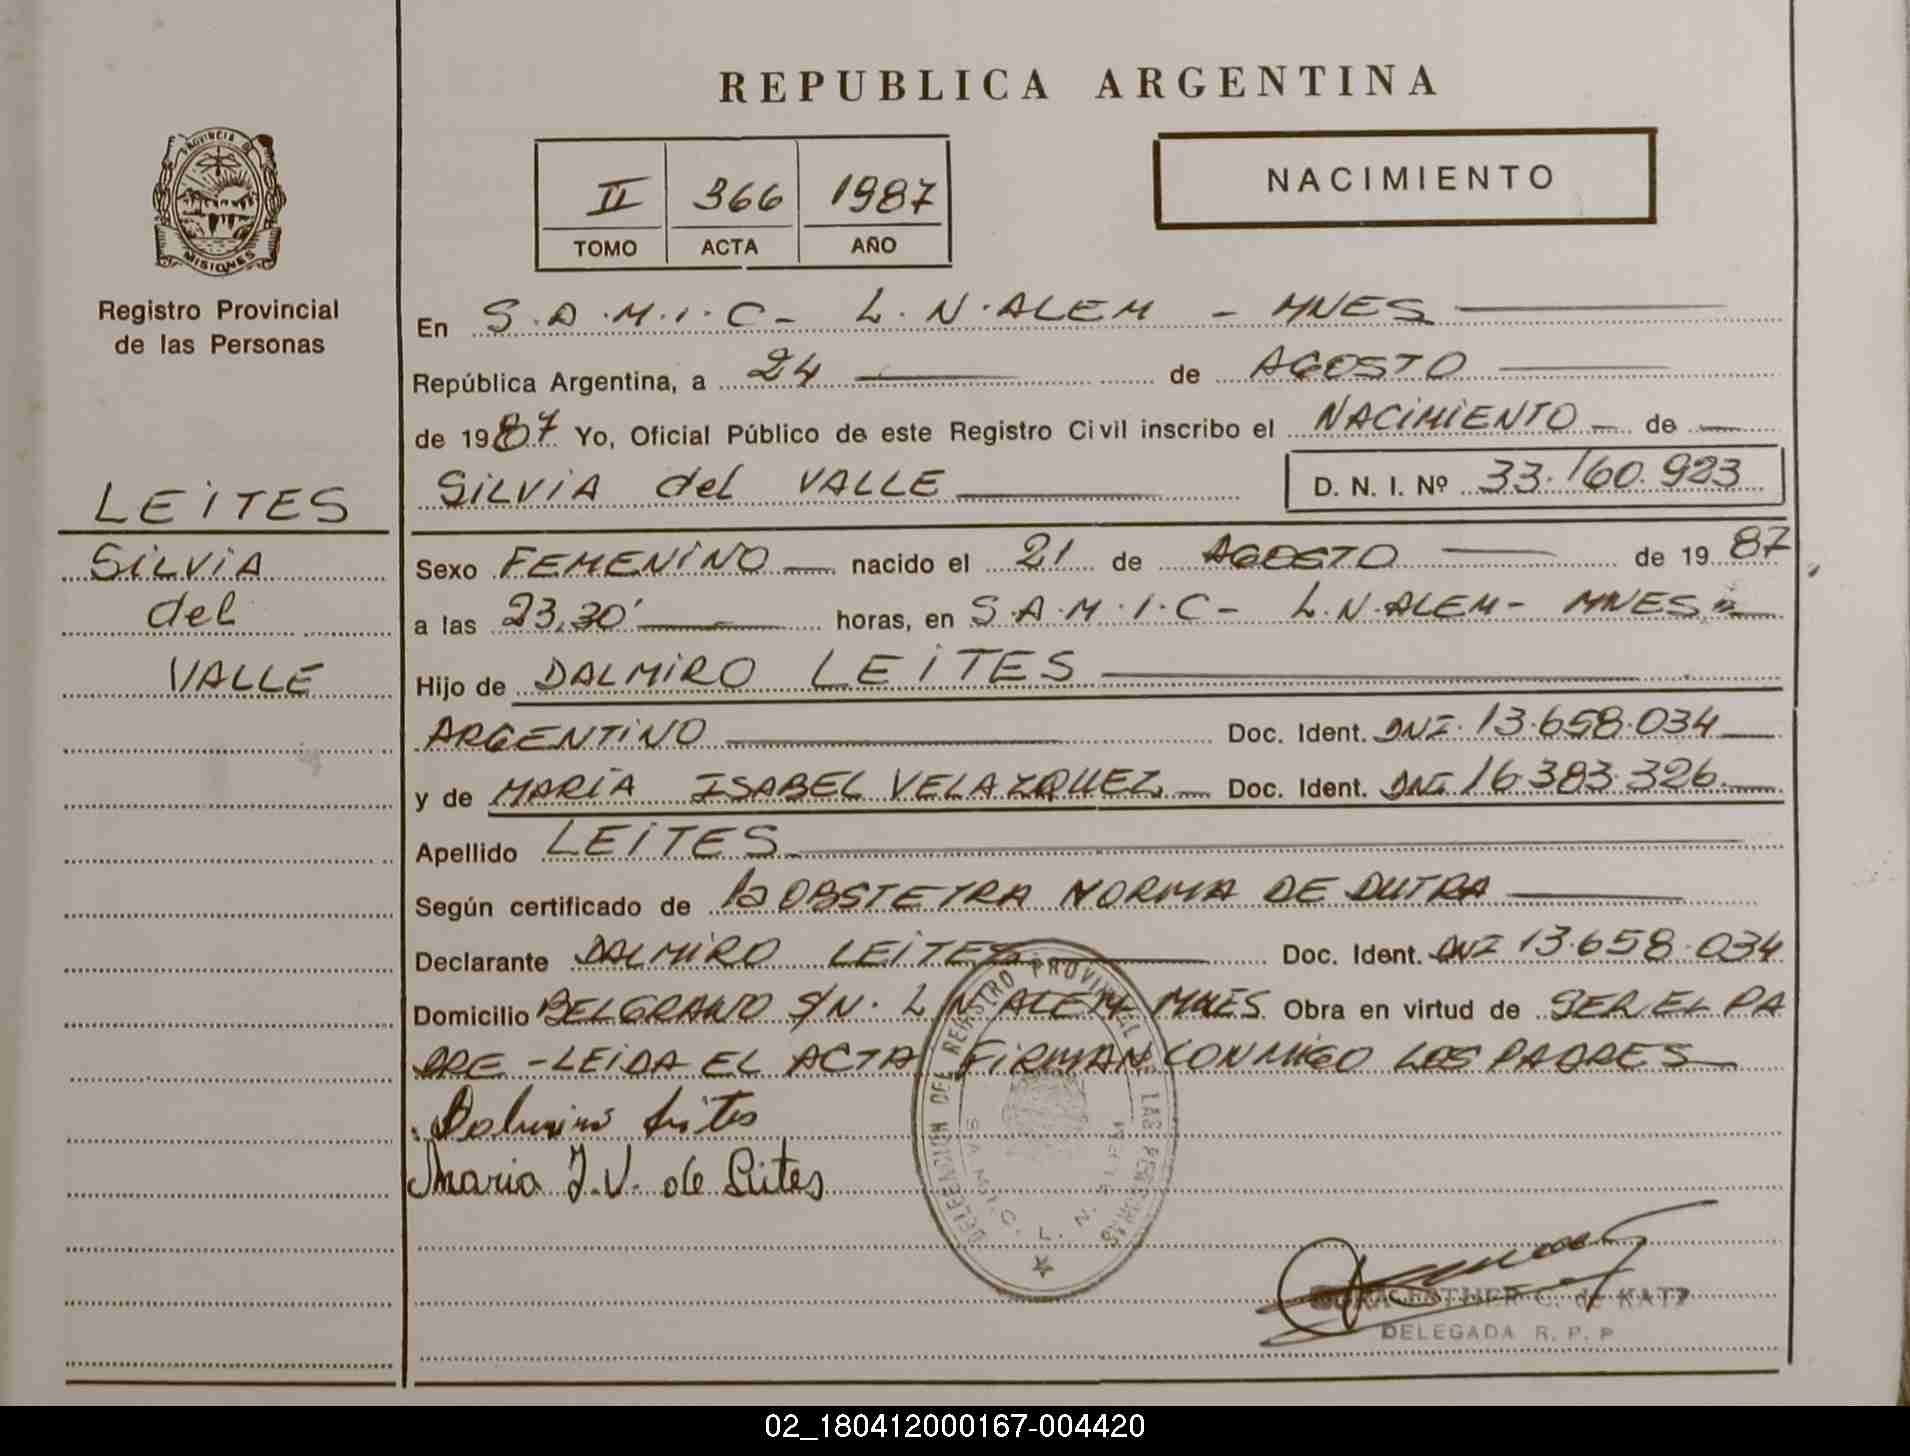 REPUBLICA ARGENTINA
PROVINCIA DE
MISIONES
Registro Provincial
de las Personas
II 366 1987
TOMO ACTA AÑO
NACIMIENTO
En S.A.M.I.C- L.N.ALEM - MNES
República Argentina, a 24 de AGOSTO
de 1987 Yo, Oficial Público de este Registro Civil inscribo el NACIMIENTO de
SILVIA del VALLE D. N. I. Nº 33.160.923
LEITES
SILVIA
del
VALLE
Sexo FEMENINO nacido el 21 de AGOSTO de 1987
a las 23,30' horas, en S.A.M.I.C- L.N.ALEM- MNES
Hijo de DALMIRO LEITES
ARGENTINO Doc. Ident. DNI. 13.658.034
y de MARIA ISABEL VELAZQUEZ Doc. Ident. DNI 16.383.326
Apellido LEITES
Según certificado de la OBSTETRA NORMA DE DUTRA
Declarante DALMIRO LEITES Doc. Ident. DNI 13.658.034
Domicilio BELGRANO S/N. L.N.ALEM MNES Obra en virtud de SER EL PA
DRE - LEIDA EL ACTA FIRMAN CONMIGO LOS PADRES
Dalmiro Leites
Maria I.V. de Leites
DELEGACION DEL REGISTRO PROVINCIAL DE LAS PERSONAS
S.A.M.I.C. L. N.
ESTHER C. de KATZ
DELEGADA R. P. P
02_180412000167-004420